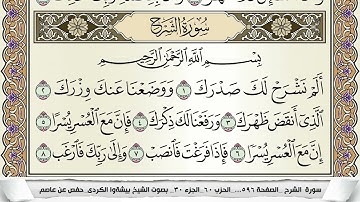 سُورَةُ الشَّرْحِ
بِسْمِ اللَّهِ الرَّحْمَٰنِ الرَّحِيمِ
أَلَمْ نَشْرَحْ لَكَ صَدْرَكَ ١ وَوَضَعْنَا عَنكَ وِزْرَكَ ٢
الَّذِي أَنقَضَ ظَهْرَكَ ٣ وَرَفَعْنَا لَكَ ذِكْرَكَ ٤ فَإِنَّ مَعَ الْعُسْرِ يُسْرًا ٥
إِنَّ مَعَ الْعُسْرِ يُسْرًا ٦ فَإِذَا فَرَغْتَ فَانصَبْ ٧ وَإِلَىٰ رَبِّكَ فَارْغَب ٨
سورة الشرح _الصفحة ٥٩٦_ الحزب ٦٠_ الجزء ٣٠_ بصوت الشيخ بيشةوا الكردى_ حفص عن عاصم